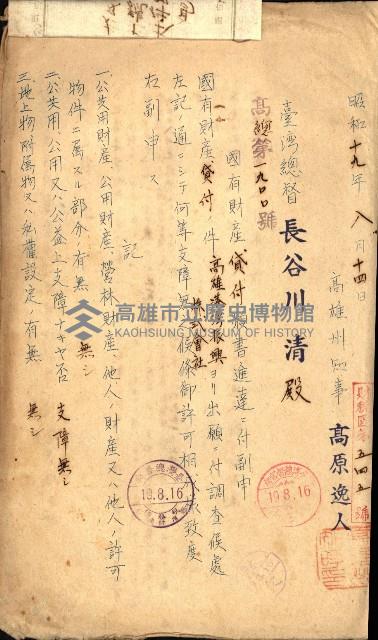 昭和十九年八月十四
高雄州知事 高原逸人
臺灣總督 長谷川清殿
高總第一九〇〇號
國有財產貸付願書進達ニ付副申
國有財產貸付ノ件高雄港
株式會社
振興ヨリ出願ニ付調查候處
左記ノ通ニシテ何等支障無
候條御許可相
致度
右副申ス
記
一、公共用財產、公用財產、營林財產、他人ノ財產又ハ他人ノ許可
物件ニ屬スル部分ノ有無 無シ
二、公共用、公用又ハ公益上支障ナキヤ否 支障無シ
三、地上物、附屬物又ハ他權設定ノ有無 無シ
19.8.16
19.8.16
五四五號
高雄市立歷史博物館
KAOHSIUNG MUSEUM OF HISTORY